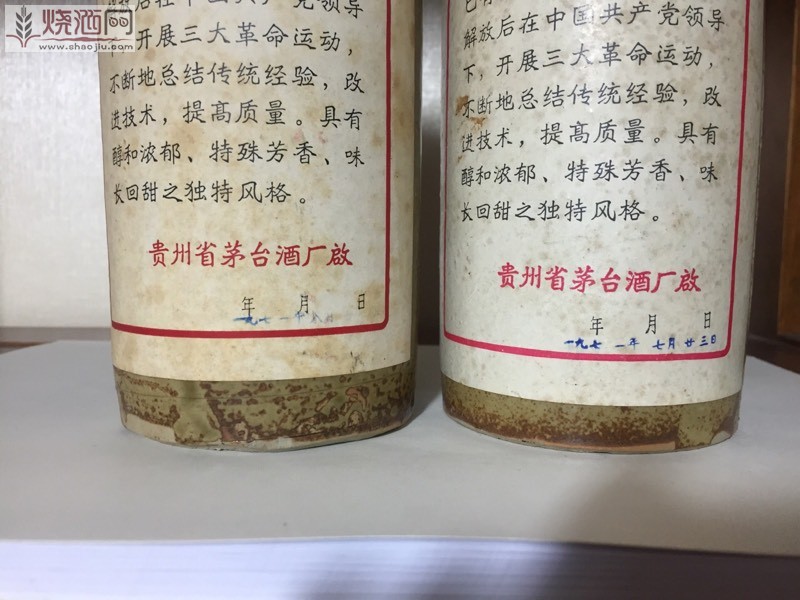 烧酒网
www.shaojiu.com
放后在中国共产党领导
下，开展三大革命运动，
不断地总结传统经验，改
进技术，提高质量。具有
醇和浓郁、特殊芳香、味
长回甜之独特风格。
贵州省茅台酒厂啟
年 月 日
一九七一年
解放后在中国共产党领导
下，开展三大革命运动，
不断地总结传统经验，改
进技术，提高质量。具有
醇和浓郁、特殊芳香、味
长回甜之独特风格。
贵州省茅台酒厂啟
年 月 日
一九七一年七月廿三日